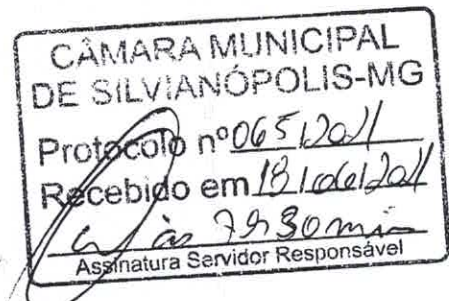 CÂMARA MUNICIPAL
DE SILVIANÓPOLIS-MG
Protocolo nº 065/2021
Recebido em 18/06/2021
às 7h30min
Assinatura Servidor Responsável